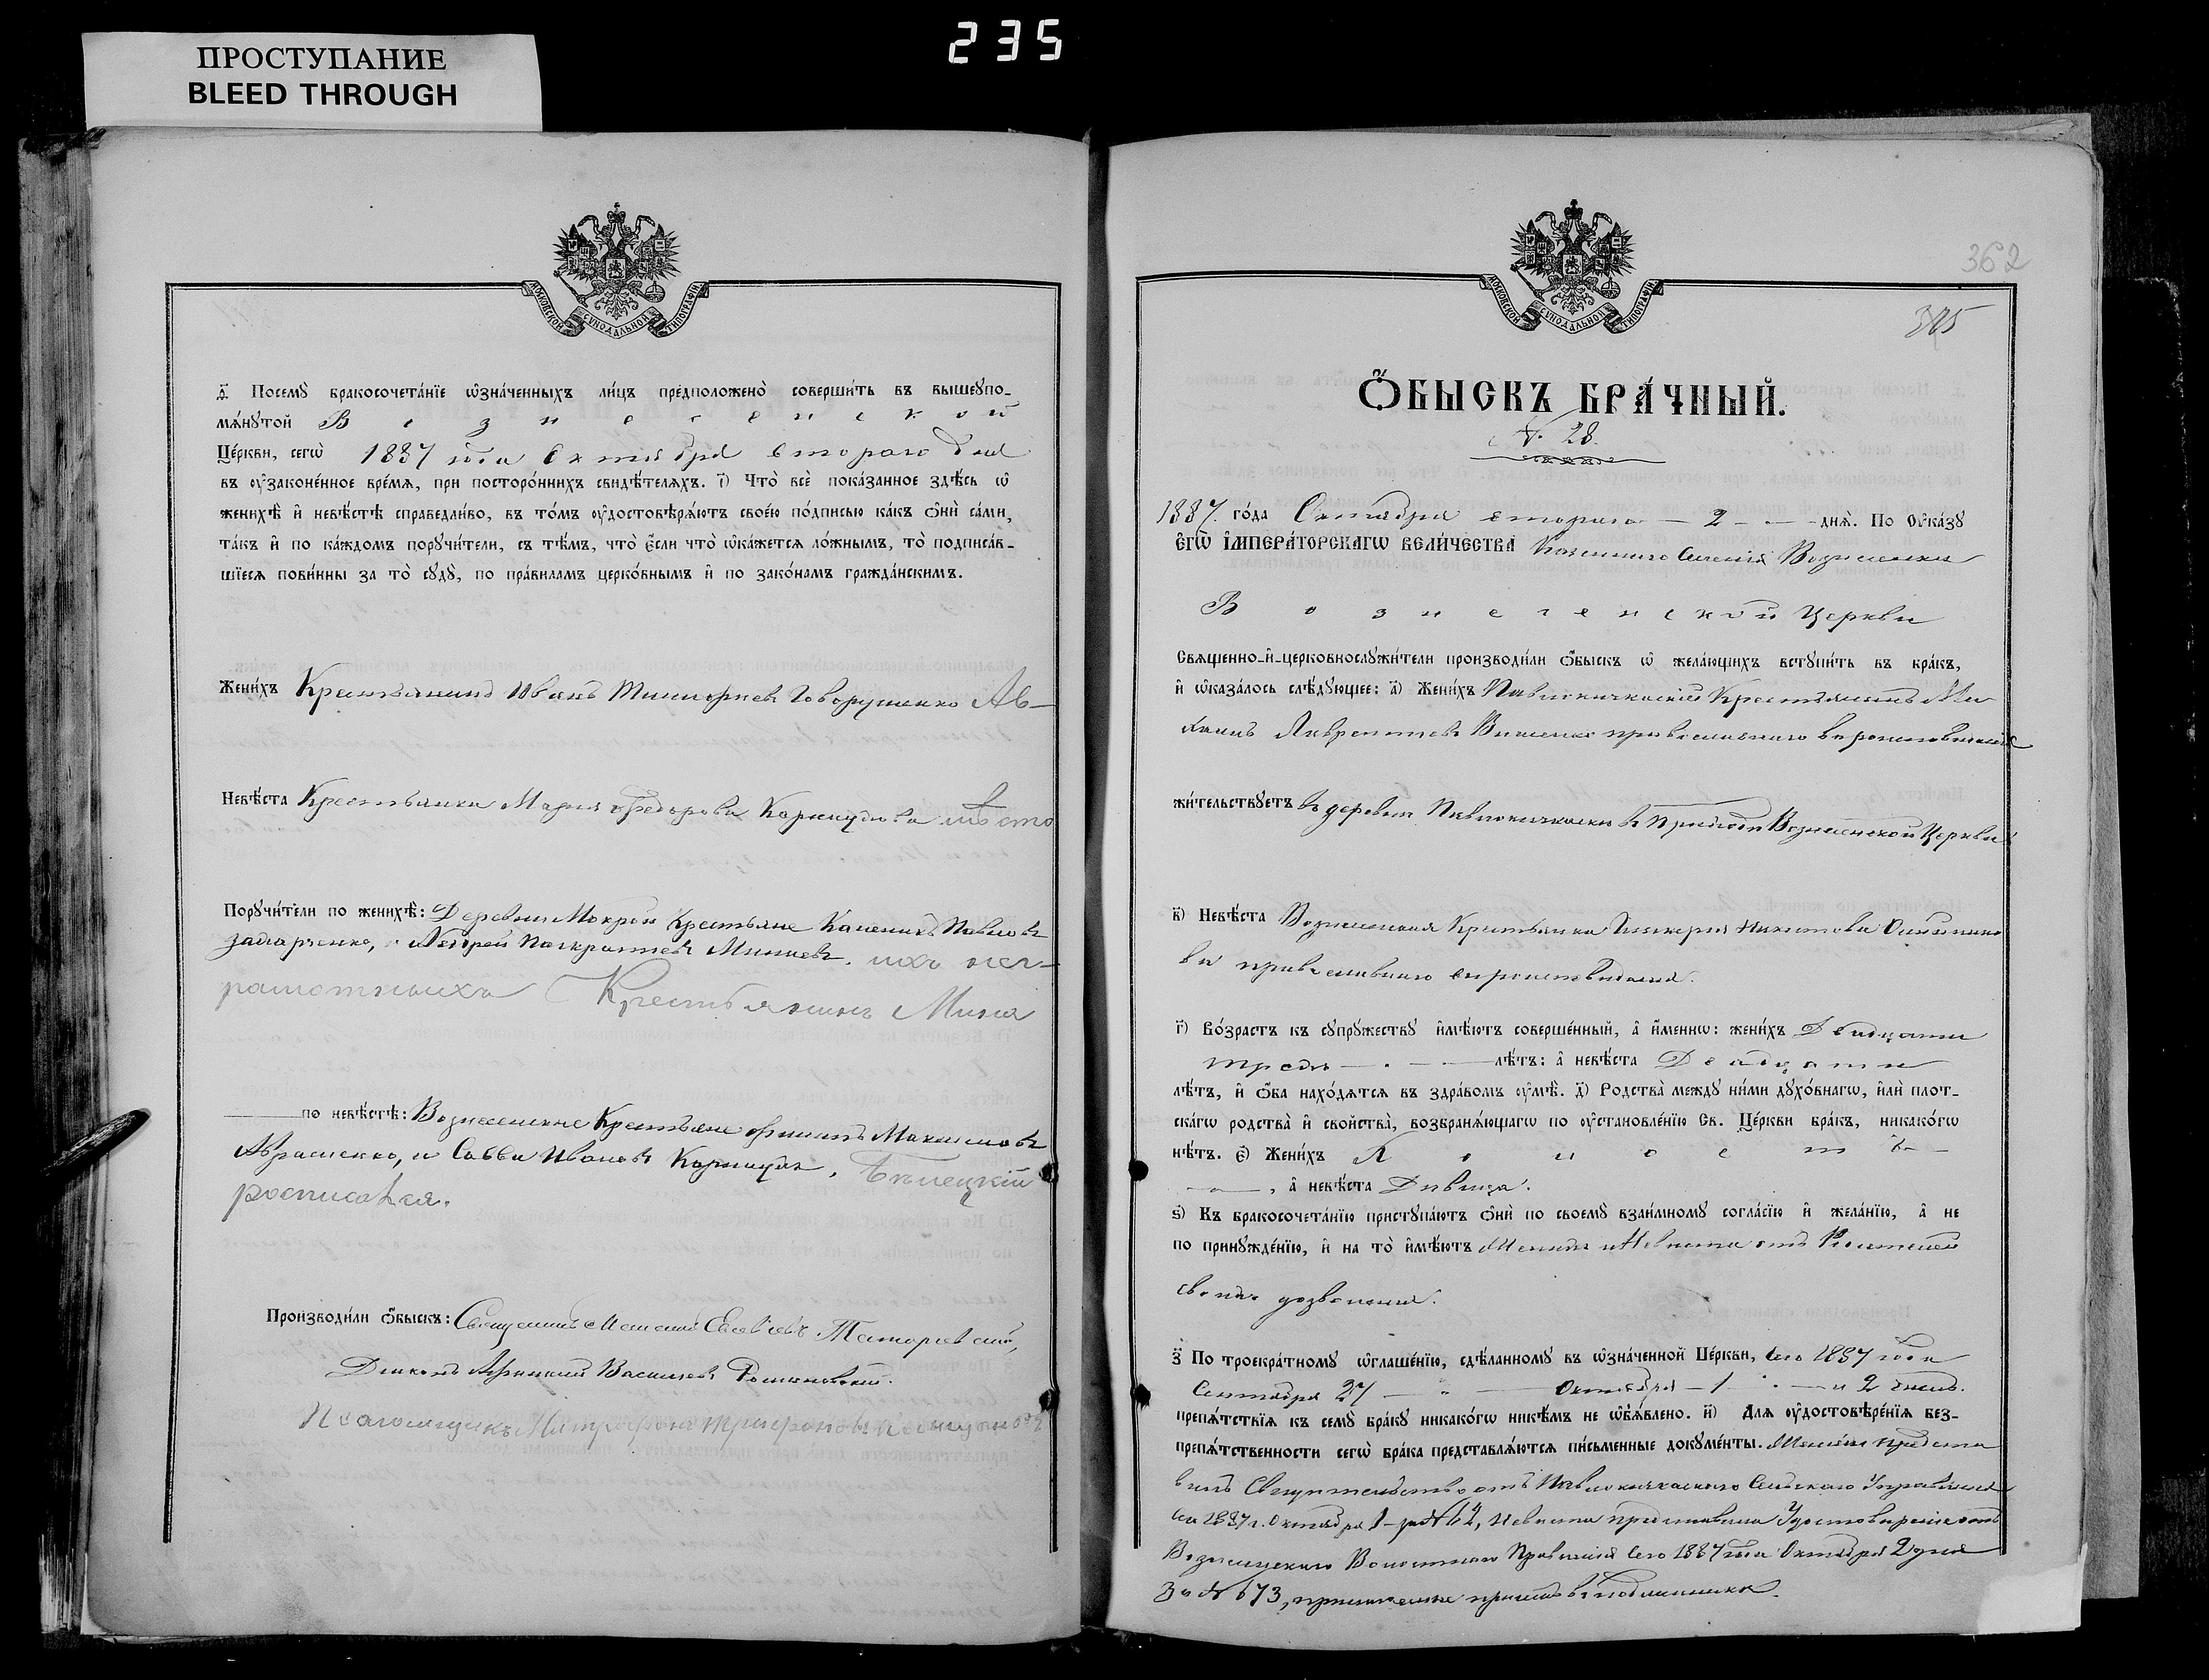 ПРОСТУПАНИЕ
BLEED THROUGH
235
МОСКОВСКОЙ СѴНОДАЛЬНОЙ ТИПОГРАФІИ
Посемꙋ̀ бракосочета́нїе ѡ҆зна́ченныхъ ли́цъ предположено̀ соверши́ть въ вышеꙋпо-
мѧ́нꙋтой Вознесенской
Це́ркви, сегѡ̀ 1887 года Октября втораго дня
въ ᲂу҆зако́не́нное вре́мѧ, при посторо́ннихъ свидѣ́телѧхъ. ї) Что̀ всѐ пока́занное здѣ́сь ѡ҆
женихѣ̀ и҆ невѣ́стѣ справедли́во, въ то́мъ ᲂу҆достовѣрѧ́ютъ свое́ю по́дписью ка́къ ѻ҆нѝ са́ми,
та́къ и҆ по ка́ждомъ порꙋчи́тели, съ тѣ́мъ, что̀ є҆́сли что̀ ѡ҆ка́жетсѧ ло́жнымъ, то̀ подписа́в-
шїесѧ пови́нны за то̀ сꙋдꙋ̀, по пра́виламъ церко́внымъ и҆ по зако́намъ гражда́нскимъ.
Жени́хъ Крестьянинъ Иванъ Тимофеевъ Говорущенко Ав-
Невѣ́ста Крестьянка Марія Ѳедорова Карнаухова вмѣсто
Порꙋчи́тели по женихѣ̀: Деревни Мокрой Крестьяне Павловъ
Андрей Панкратьевъ Минаевъ. ихъ негра-
рамотныхъ Крестьянинъ Мина
по невѣ́стѣ: Вознесенске Крестьяне Филипъ Максимовъ
Абраменко, и Савва Ивановъ Бѣлецкій
росписался.
Производи́ли ѻ҆́быскъ: Священникъ Алексій
Діаконъ Василіевъ Романовскій.
Псаломщикъ Митрофанъ Трифоновъ
МОСКОВСКОЙ СѴНОДАЛЬНОЙ ТИПОГРАФІИ
362
ѺБЫСКЪ БРА́ЧНЫЙ.
№ 28.
1887. го́да Октября втораго — 2 — днѧ̀. По ᲂу҆ка́зꙋ
є҆гѡ̀ і҆мпера́торскагѡ вели́чества Казеннаго Селенія Вознесенки
Вознесенской Церкви
Свѧще́нно-и҆-церковнослꙋжи́тели производи́ли ѻ҆́быскъ ѡ҆ жела́ющихъ встꙋпи́ть въ бра́къ,
и҆ ѡ҆каза́лось слѣ́дꙋющее: а҃) Жени́хъ Павлокичкаскій Крестьянинъ Ми-
хаилъ Лаврентіевъ православнаго вѣроисповѣданія
жи́тельствꙋетъ въ деревни Павлокичкаски въ Приходѣ Вознесенской Церкви
в҃) Невѣ́ста Вознесенская Крестьянка Гликерія Никитова
ва православнаго вѣроисповѣданія.
г҃) Во́зрастъ къ сꙋпрꙋ́жествꙋ и҆мѣ́ютъ соверше́нный, а҆ и҆́меннѡ: жени́хъ Двадцати
трехъ — лѣ́тъ: а҆ невѣ́ста Двадцати
лѣ́тъ, и҆ ѻ҆́ба нахо́дѧтсѧ въ здра́вомъ ᲂу҆мѣ̀. д҃) Родства̀ междꙋ̀ ни́ми дꙋхо́внагѡ, и҆лѝ плот-
ска́гѡ родства̀ и҆ сво́йства̀, возбранѧ́ющагѡ по ᲂу҆становле́нїю Св. Це́ркви бра́къ, никако́гѡ
нѣ́тъ. є҃) Жени́хъ Холостъ
, а҆ невѣ́ста Дѣвица.
ѕ҃) Къ бракосочета́нїю пристꙋпа́ютъ ѻ҆нѝ по своемꙋ̀ взаи́мномꙋ согла́сїю и҆ жела́нїю, а҆ не
по принꙋжде́нїю, и҆ на то̀ и҆мѣ́ютъ Женихъ и Невѣста отъ Родителей
своихъ дозволенія.
з҃) По троекра́тномꙋ ѡ҆глаше́нїю, сдѣ́ланномꙋ въ ѡ҆зна́ченной Це́ркви, Сего 1887 года
Сентября 27 — Октября — 1 — и 2 дней.
препѧ́тствїѧ къ семꙋ̀ бра́кꙋ никако́гѡ никѣ́мъ не ѡ҆б̾ѧ́влено. и҃) Длѧ ᲂу҆достовѣре́нїѧ без-
препѧ́тственности сегѡ̀ бра́ка представлѧ́ютсѧ пи́сьменные докꙋме́нты. Женихъ предста-
вилъ Свидѣтельство отъ Павлокичкаскаго Сельскаго Управленія
1887 г. Октября 1 за № 62, Невѣста представила Удостовѣреніе отъ
Вознесенскаго Волостнаго Правленія Сего 1887 года Октября 2 дня
За № 673,